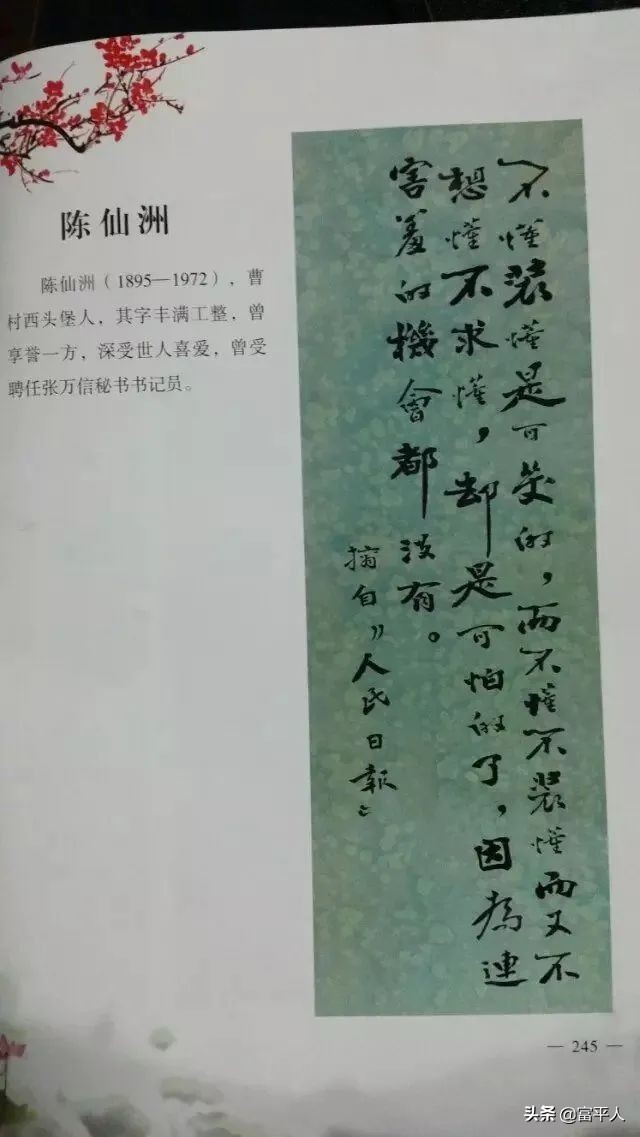 陈仙洲
陈仙洲（1895—1972），曹
村西头堡人，其字丰满工整，曾
享誉一方，深受世人喜爱，曾受
聘任张万信秘书书记员。
不懂裝懂是可笑的，而不懂不裝懂而又不
想懂不求懂，却是可怕的了，因為連
害羞的機會都没有。
摘自《人民日報》
— 245 —
头条 @富平人